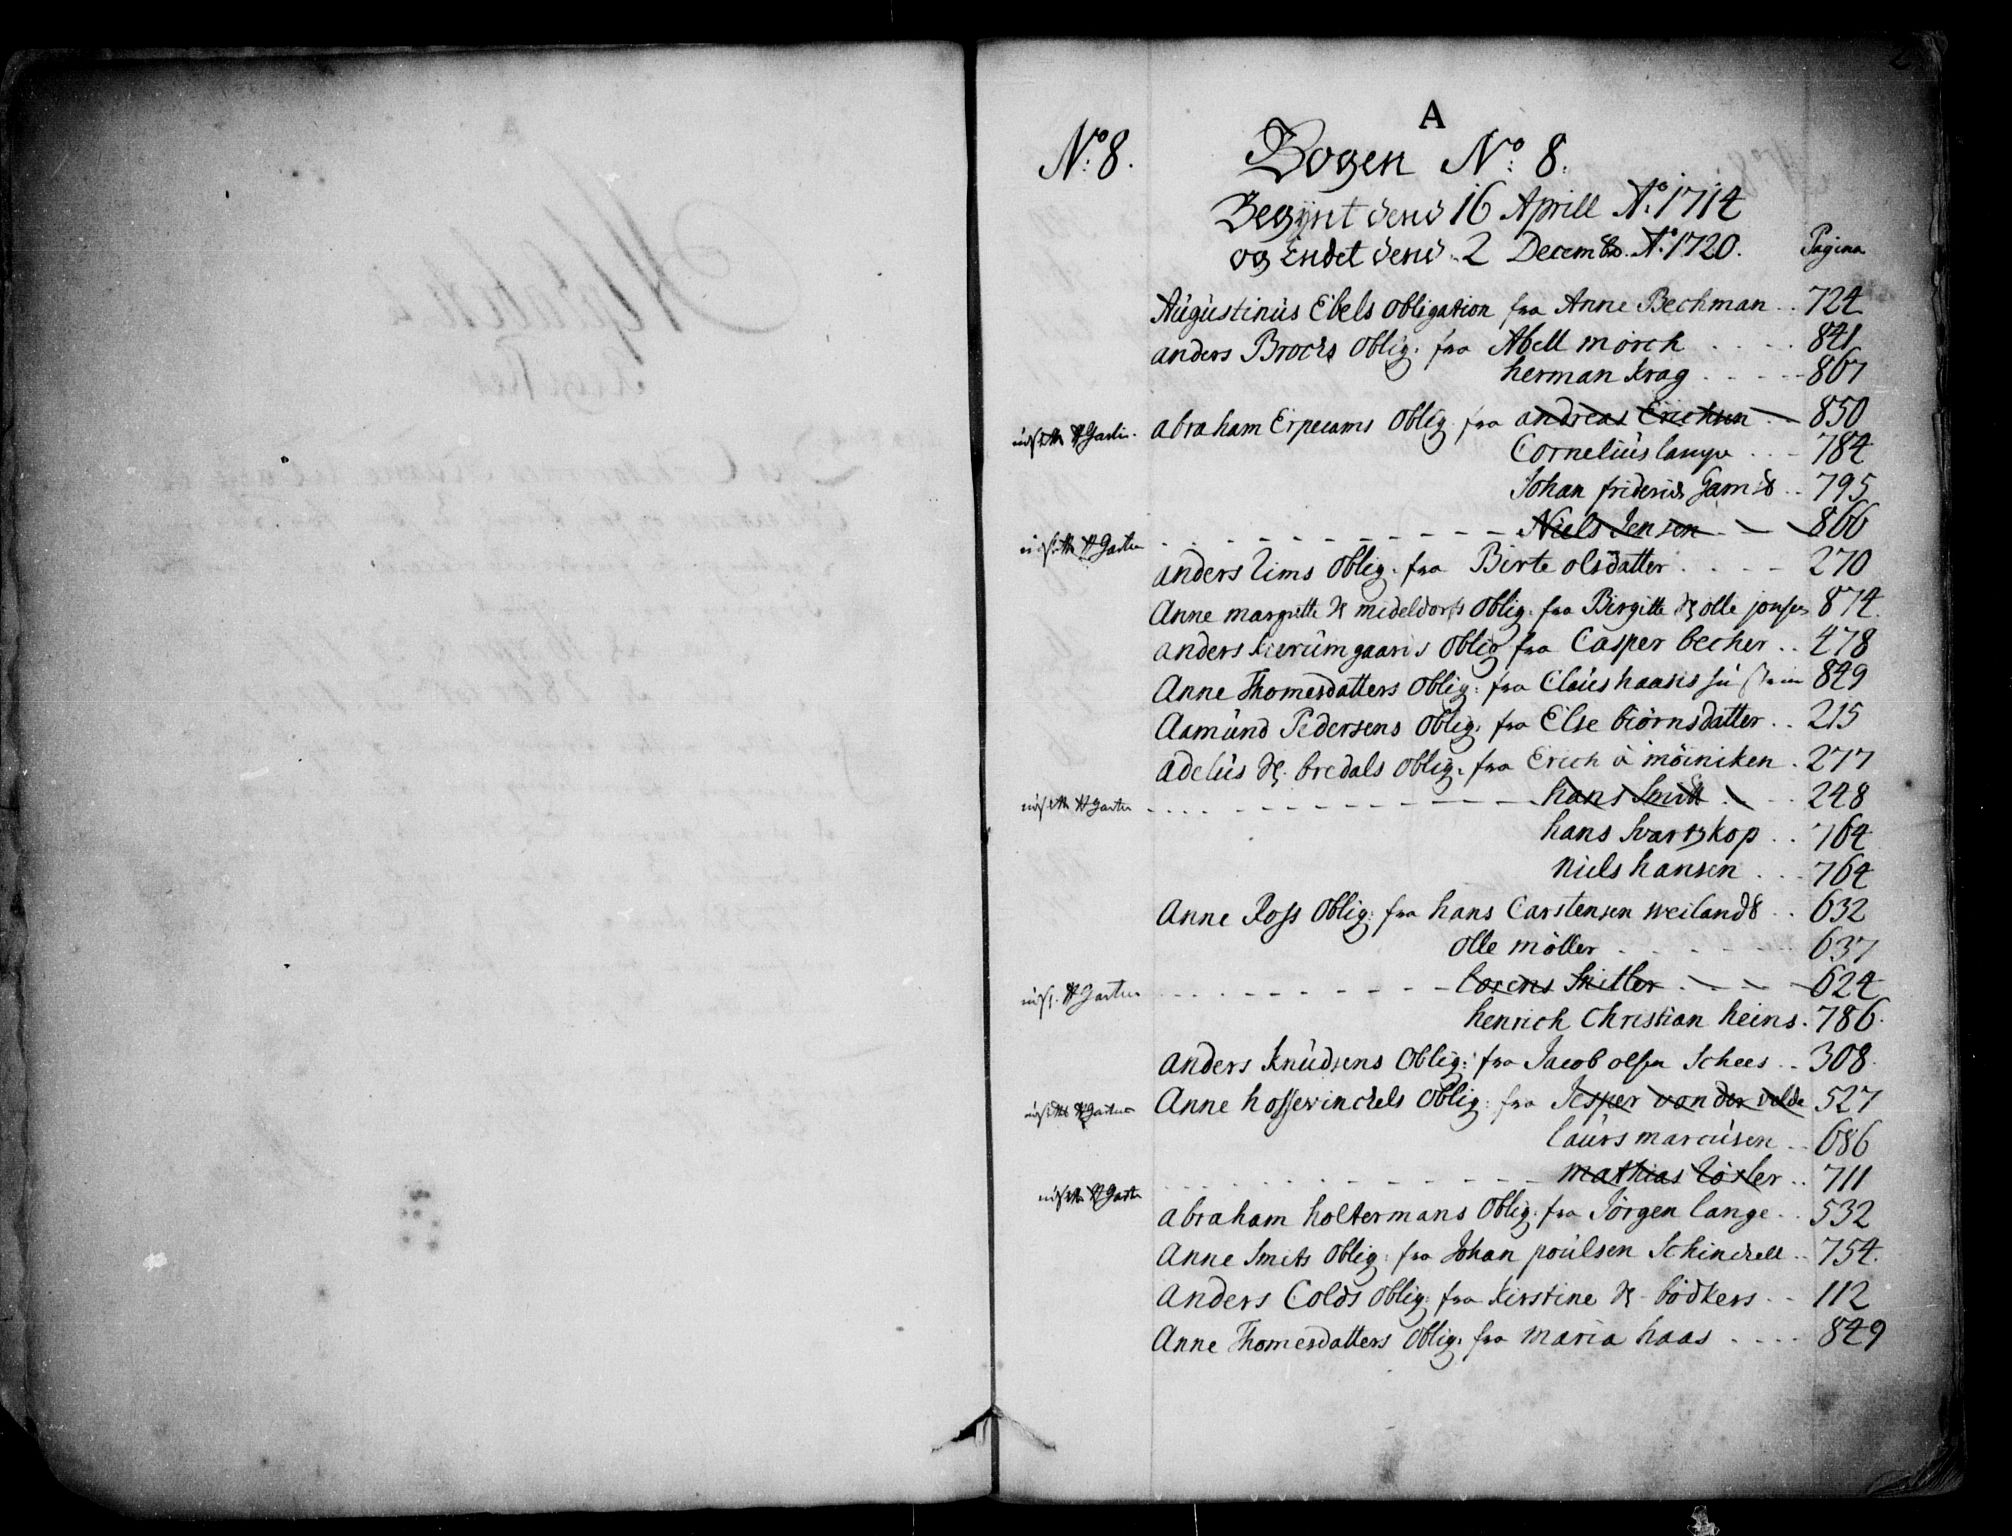 2
A
No. 8.
Bogen No. 8.
Begÿnt dend 16 Aprill Ao. 1714
og Endet dend 2 Decembr. Ao. 1720.
Pagina
Augustinus Ebels obligation fra Anne Bechman .. 724
anders Brochs oblig. fra Abell morch .... 841
herman Krag ..... 867
abraham Erpecams oblig. fra andreas Erichsen — 850
Cornelius lampe ... 784
Johan friderich .. 795
Niels Jensen — 866
anders lims oblig. fra Birte olsdatter .... 270
Anne margrette mideldorfs oblig. fra Birgitte olle 874.
anders oblig fra Casper becher .. 478
Anne Thomesdatters oblig: fra Claus haasis 849
Aamund Pedersens oblig. fra Else biörnsdatter .. 215
adelus bredals oblig. fra Erich a möiniken . 277
hans Smitt ... 248
hans Svartzkop .. 764
niels hansen ... 764
Anne Ross oblig: fra hans Carstensen weilands .. 632
olle möller ..... 637
lorens — 624
henrich Christian heins . 786.
anders Knudsens oblig: fra Jacob olsen Schees .. 308.
Anne hossewinckels oblig: fra Jesper von der velde 527
laurs marcusen .. 686
mathias .. 711
abraham holtermans oblig. fra Jörgen lange .. 532
Anne Smits oblig: fra Johan poulsen Schinckell .. 754.
Anders Colds oblig: fra Kirstine bödkers .. 112
Anne Thomesdatters oblig. fra maria haas .... 849